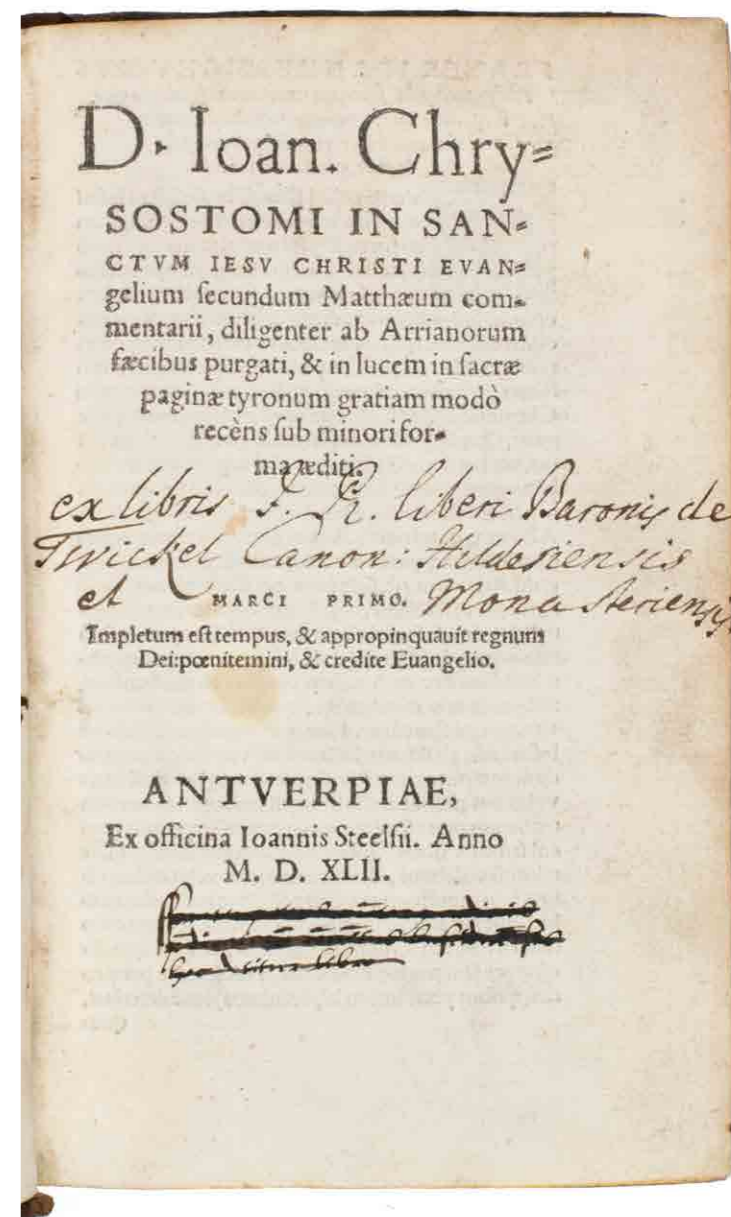 D. Ioan. Chry=
SOSTOMI IN SAN=
CTVM IESV CHRISTI EVAN=
gelium ſecundum Matthæum com=
mentarii, diligenter ab Arrianorum
fæcibus purgati, & in lucem in ſacræ
paginæ tyronum gratiam modò
recèns ſub minori for=
ma æditi.
ex libris F. R. liberi Baronis de
Twickel Canon: Hildesiensis
et Monasteriensis.
MARCI PRIMO.
Impletum eſt tempus, & appropinquauit regnum
Dei: pœnitemini, & credite Euangelio.
ANTVERPIAE,
Ex officina Ioannis Steelſii. Anno
M. D. XLII.
libro